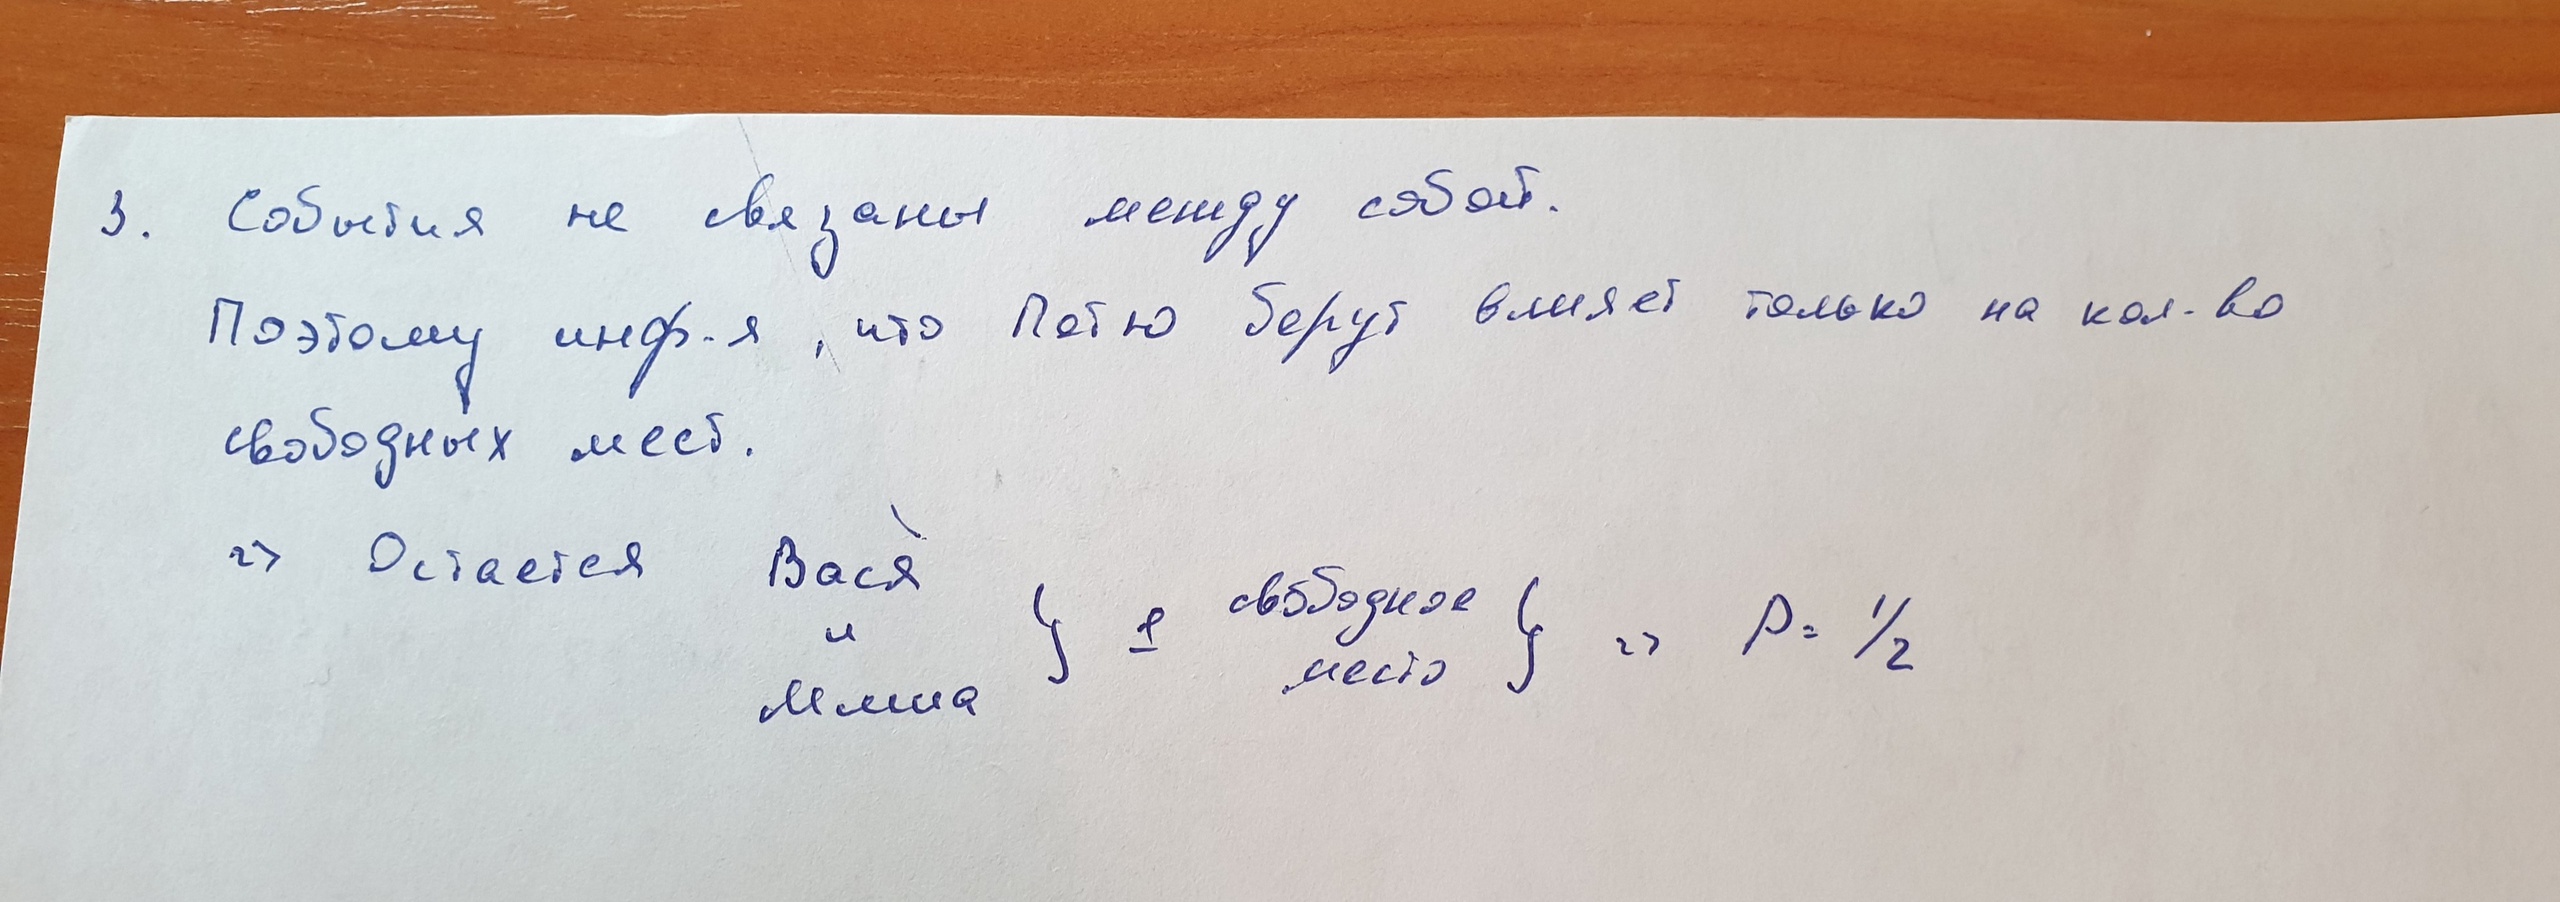 3. События не связаны между собой.
Поэтому инф-я, что Петю берут влияет только на кол-во
свободных мест.
=> Остается Вася
и
Миша
} 1 свободное
место } => P = 1/2